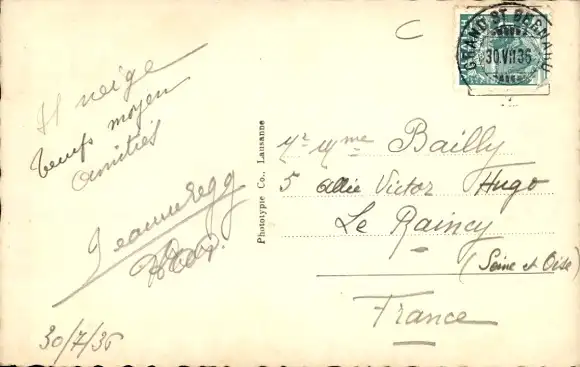 Il neige
temps moyen
amitiés
30/7/36
Phototypie Co., Lausanne
GRAND ST BERNARD
30.VII.36
Mr Mme Bailly
5 allée Victor Hugo
Le Raincy
(Seine et Oise)
France